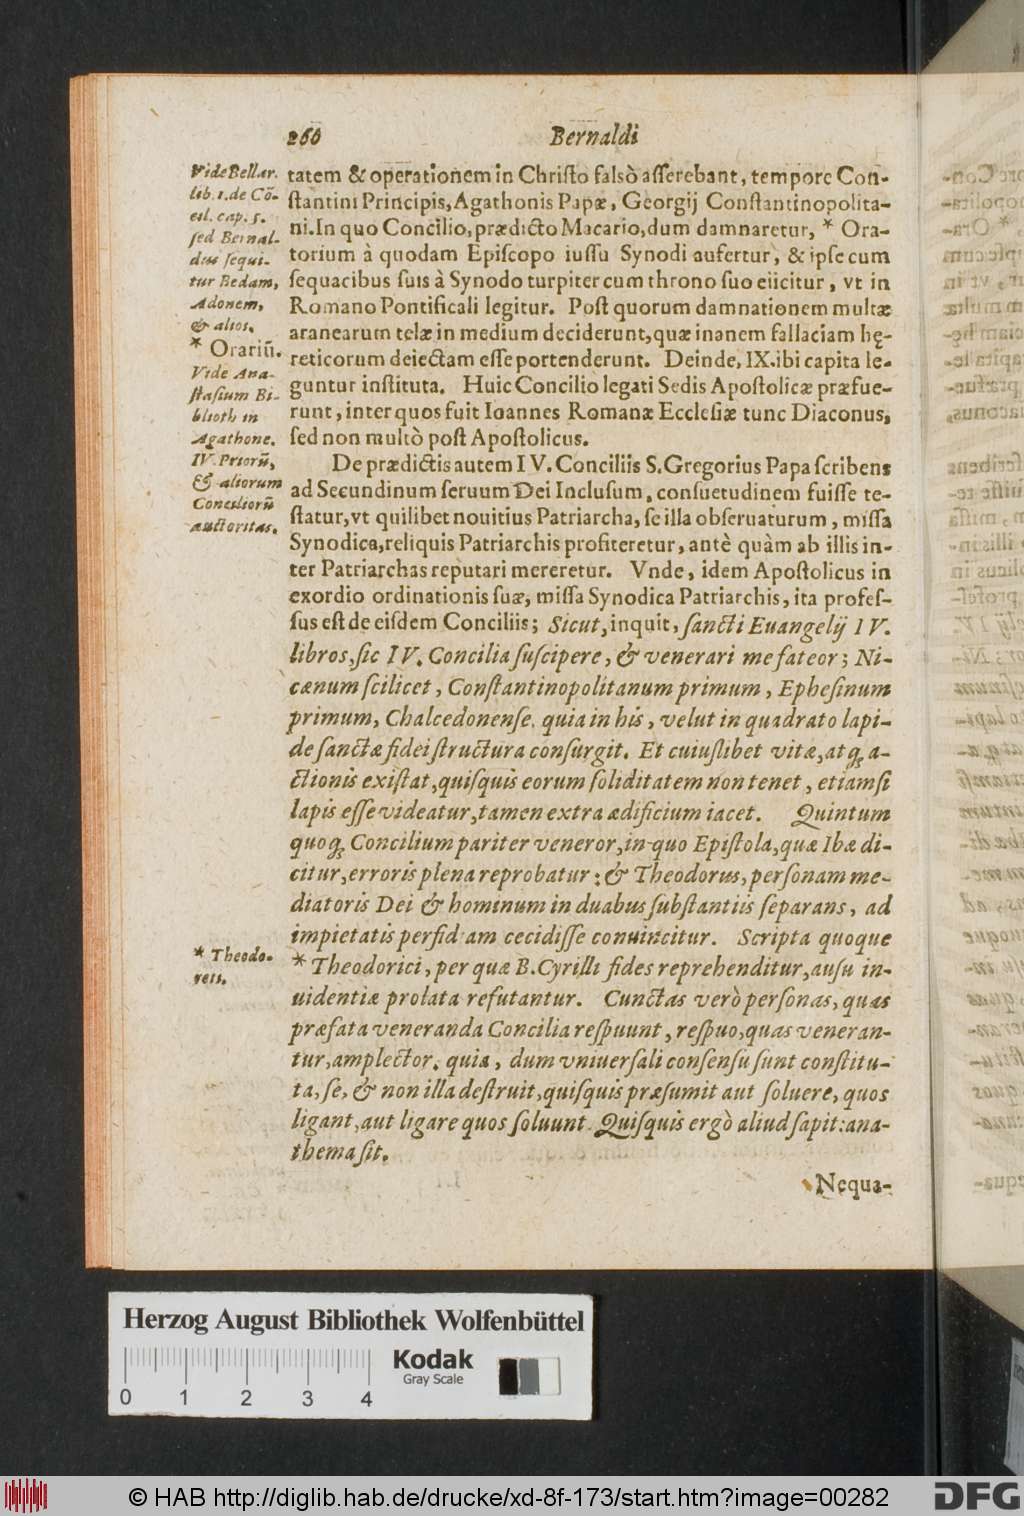 260 Bernaldi
Vide Bellar.
lib. 1. de Cō-
cil. cap. 5.
sed Bernal-
dus sequi-
tur Bedam,
Adonem,
& alios.
* Orariū.
Vide Ana-
stasium Bi-
blioth in
Agathone.
IV. Priorū,
& aliorum
Conciliorū
auctoritas.
tatem & operationem in Christo falsò asserebant, tempore Con-
stantini Principis, Agathonis Papæ, Georgij Constantinopolita-
ni. In quo Concilio, prædicto Macario, dum damnaretur, * Ora-
torium à quodam Episcopo iussu Synodi aufertur, & ipse cum
sequacibus suis à Synodo turpiter cum throno suo eiicitur, vt in
Romano Pontificali legitur. Post quorum damnationem multæ
aranearum telæ in medium deciderunt, quæ inanem fallaciam hę-
reticorum deiectam esse portenderunt. Deinde, IX. ibi capita le-
guntur instituta. Huic Concilio legati Sedis Apostolicæ præfue-
runt, inter quos fuit Ioannes Romanæ Ecclesiæ tunc Diaconus,
sed non multò post Apostolicus.
De prædictis autem IV. Conciliis S. Gregorius Papa scribens
ad Secundinum seruum Dei Inclusum, consuetudinem fuisse te-
statur, vt quilibet nouitius Patriarcha, se illa obseruaturum, missa
Synodica, reliquis Patriarchis profiteretur, antè quàm ab illis in-
ter Patriarchas reputari mereretur. Vnde, idem Apostolicus in
exordio ordinationis suæ, missa Synodica Patriarchis, ita profes-
sus est de eisdem Conciliis; Sicut, inquit, sancti Euangelij IV.
libros, sic IV. Concilia suscipere, & venerari me fateor; Ni-
cænum scilicet, Constantinopolitanum primum, Ephesinum
primum, Chalcedonense. quia in his, velut in quadrato lapi-
de sanctæ fidei structura consurgit. Et cuiuslibet vitæ, atq; a-
ctionis existat, quisquis eorum soliditatem non tenet, etiamsi
lapis esse videatur, tamen extra ædificium iacet. Quintum
quoq; Concilium pariter veneror, in quo Epistola, quæ Ibæ di-
citur, erroris plena reprobatur: & Theodorus, personam me-
diatoris Dei & hominum in duabus substantiis separans, ad
impietatis perfidiam cecidisse conuincitur. Scripta quoque
* Theodorici, per quæ B. Cyrilli fides reprehenditur, ausu in-
uidentiæ prolata refutantur. Cunctas verò personas, quas
præfata veneranda Concilia respuunt, respuo, quas veneran-
tur, amplector. quia, dum vniuersali consensu sunt constitu-
ta, se, & non illa destruit, quisquis præsumit aut soluere, quos
ligant, aut ligare quos soluunt. Quisquis ergò aliud sapit: ana-
thema sit.
* Theodo-
reti.
Nequa-
Herzog August Bibliothek Wolfenbüttel
Kodak
Gray Scale
0 1 2 3 4
© HAB http://diglib.hab.de/drucke/xd-8f-173/start.htm?image=00282
DFG